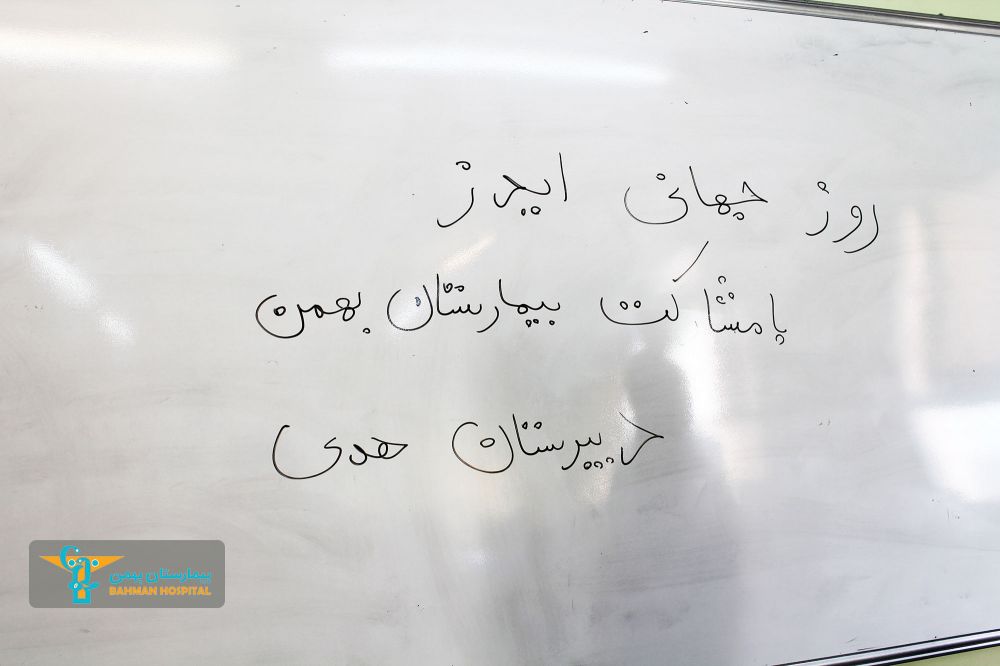 روز جهانی ایدز
بامشارکت بیمارستان بهمن
دبیرستان هدی
بیمارستان بهمن
BAHMAN HOSPITAL